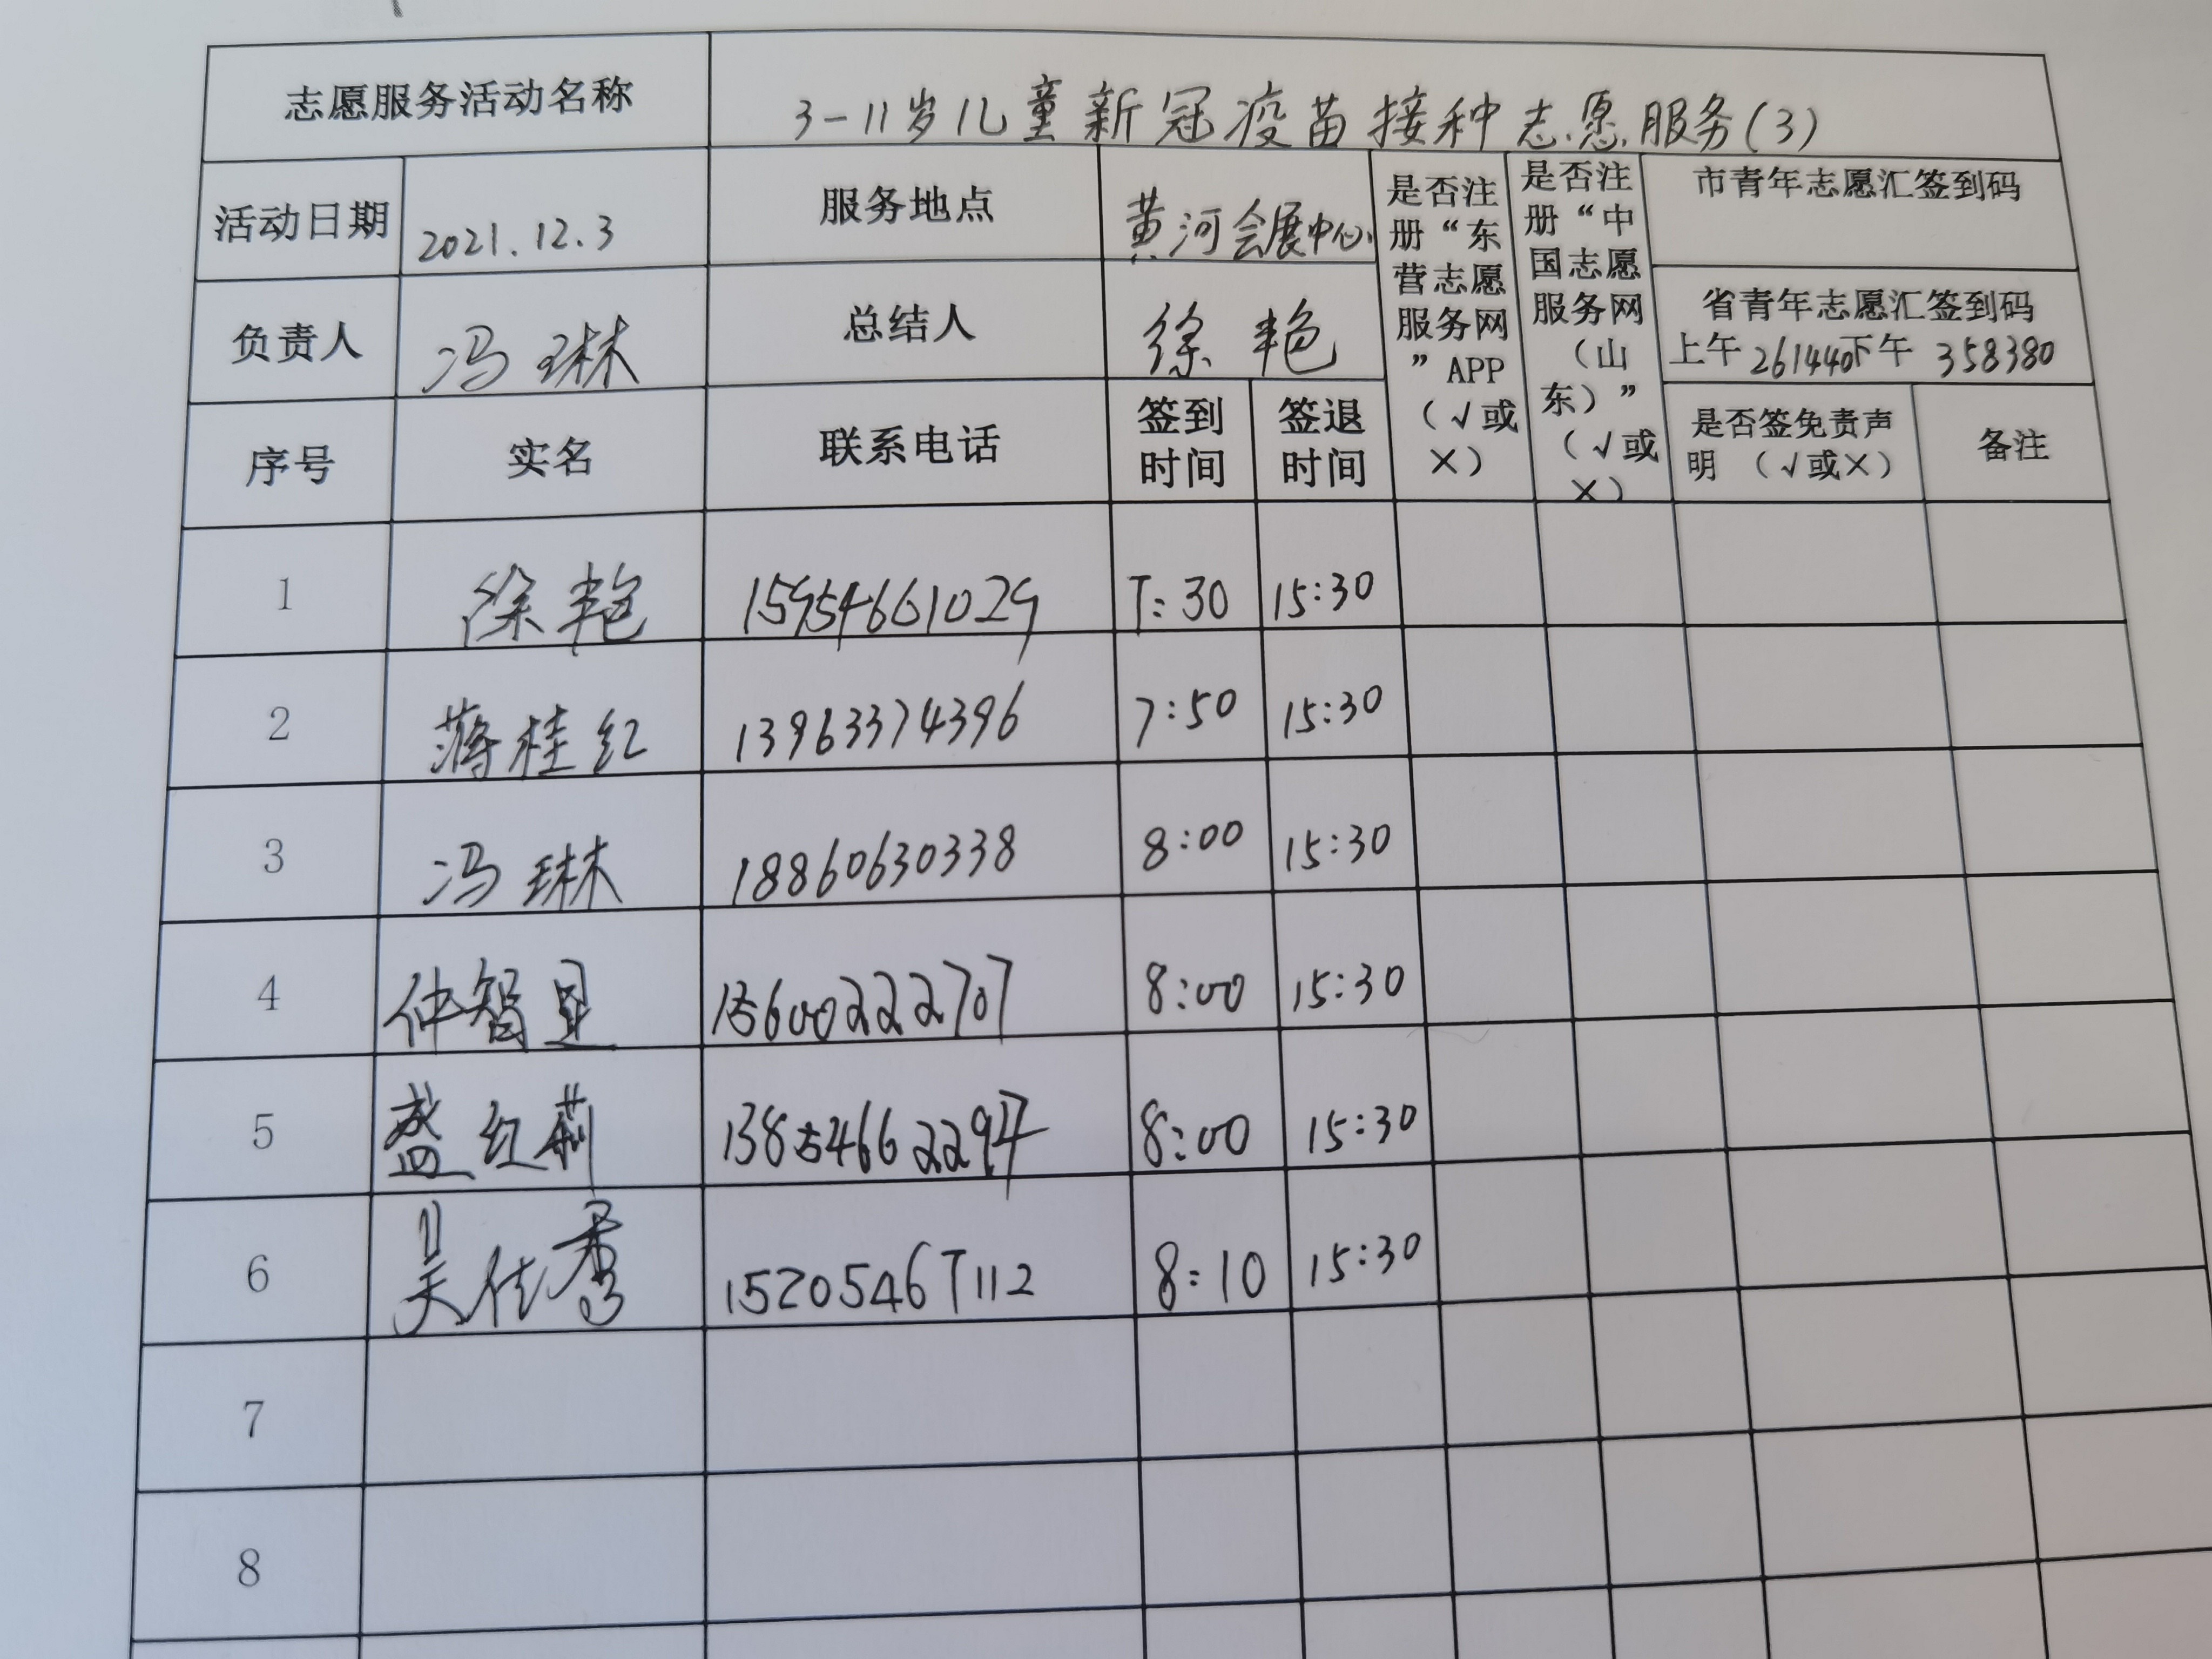 志愿服务活动名称 3-11岁儿童新冠疫苗接种志愿服务(3)
活动日期 2021.12.3 服务地点 黄河会展中心 是否注册“东营志愿服务网”APP（√或×） 是否注册“中国志愿服务网（山东）”（√或×） 市青年志愿汇签到码
负责人 冯琳 总结人 徐艳 省青年志愿汇签到码
上午 261440 下午 358380
序号 实名 联系电话 签到时间 签退时间 是否签免责声明 （√或×） 备注
1 徐艳 15954661029 7:30 15:30
2 蒋桂红 13963374396 7:50 15:30
3 冯琳 18860630338 8:00 15:30
4 仲智 15600222707 8:00 15:30
5 盛红莉 13854662294 8:00 15:30
6 吴佳秀 15205467112 8:10 15:30
7
8